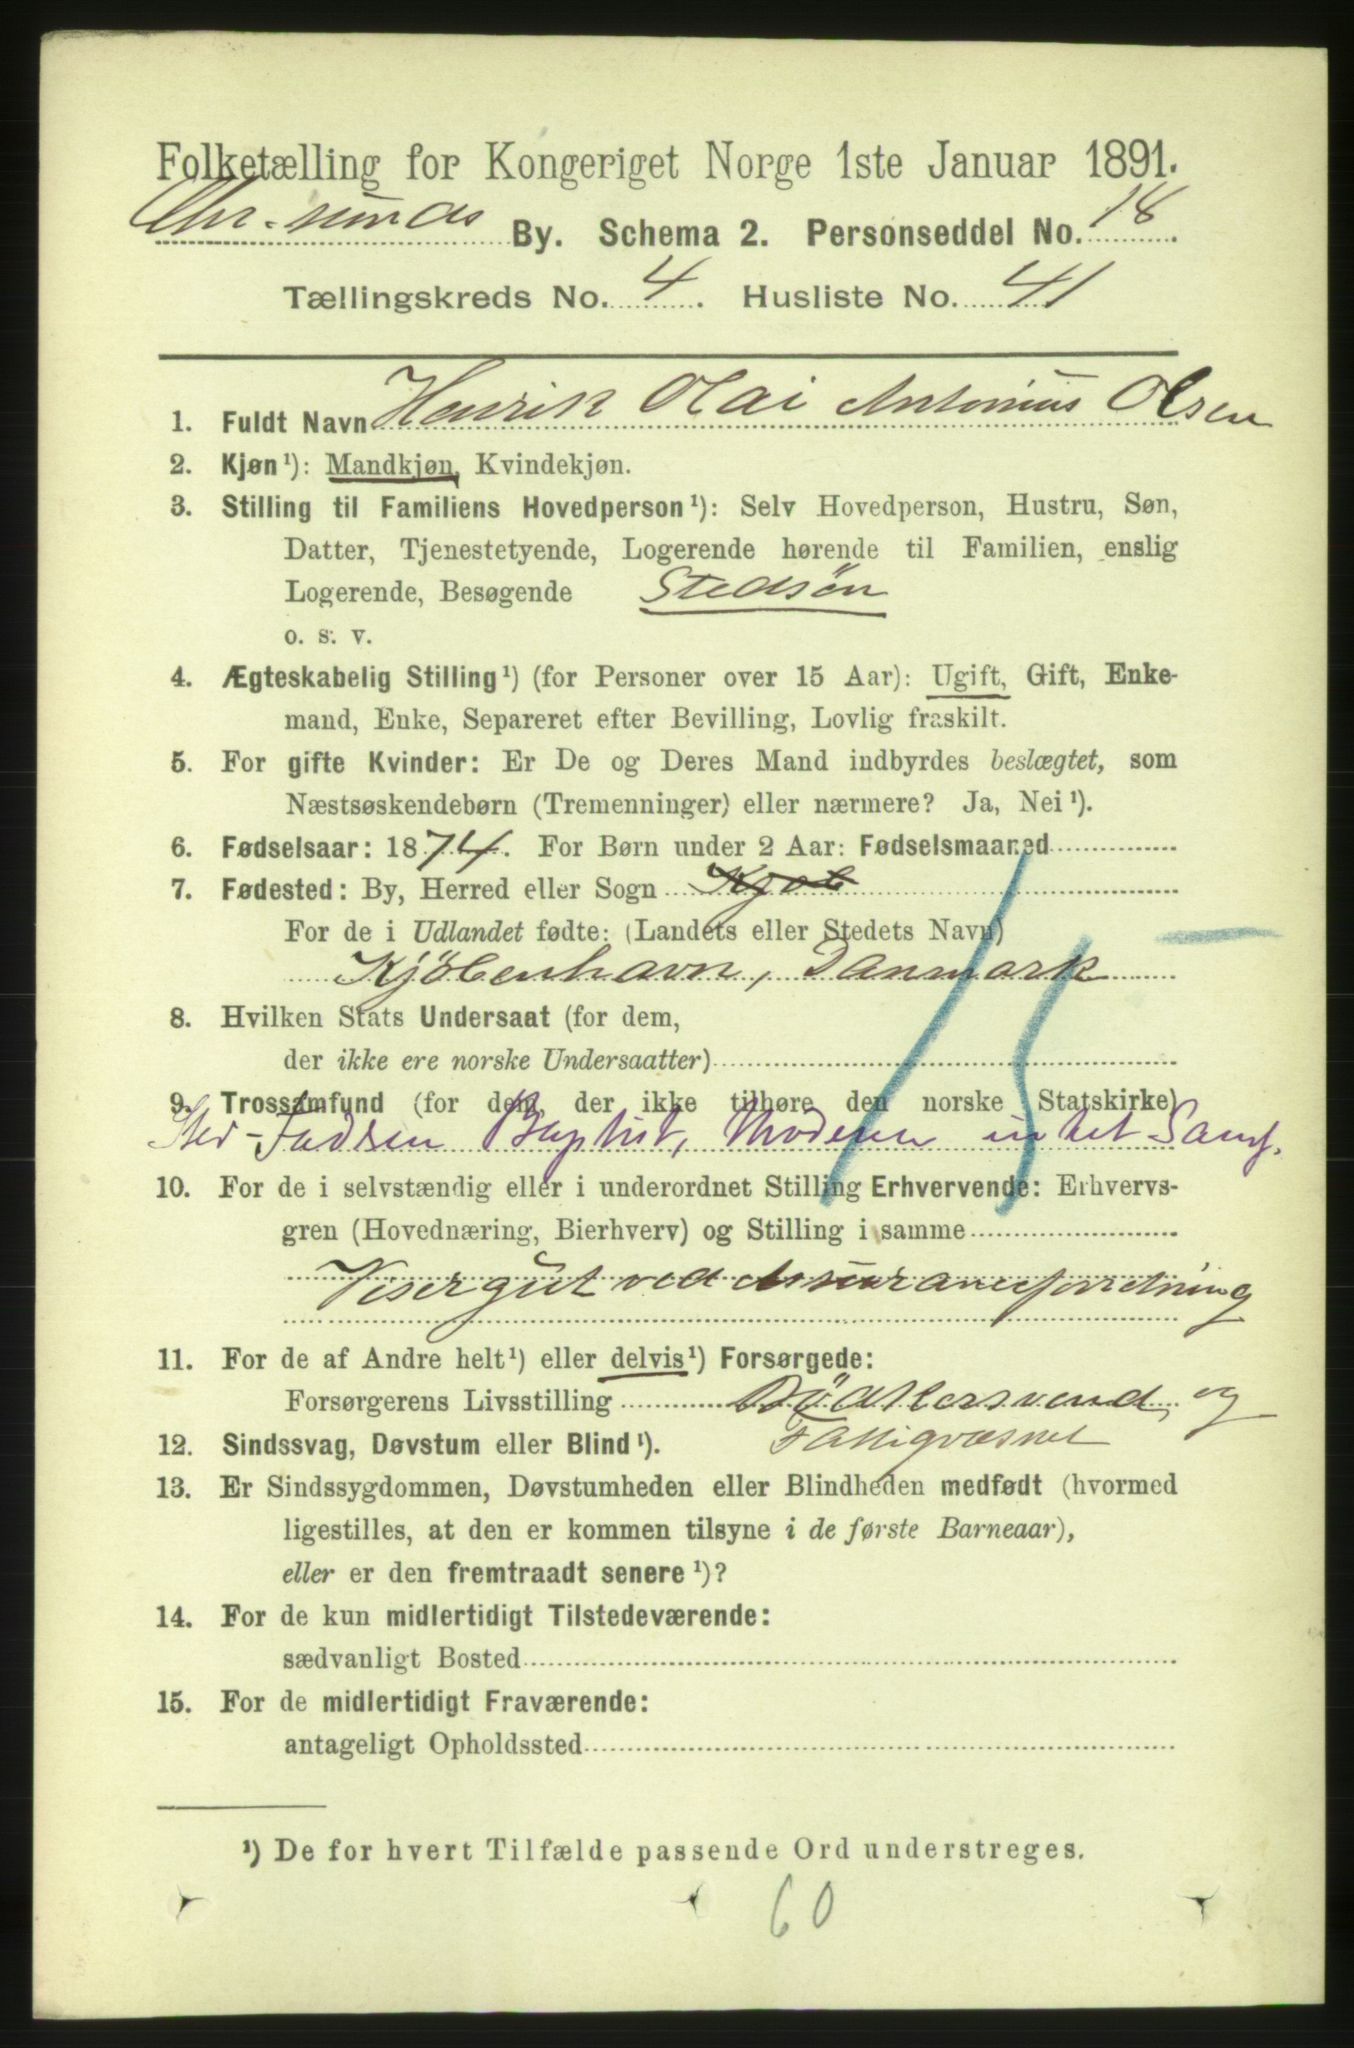 Folketælling for Kongeriget Norge 1ste Januar 1891.
Chr. sunds By. Schema 2. Personseddel No. 18
Tællingskreds No. 4. Husliste No. 41
1. Fuldt Navn Henrik Olai Antonius Olsen
2. Kjøn¹): Mandkjøn, Kvindekjøn.
3. Stilling til Familiens Hovedperson¹): Selv Hovedperson, Hustru, Søn,
Datter, Tjenestetyende, Logerende hørende til Familien, enslig
Logerende, Besøgende Stedsön
o. s. v.
4. Ægteskabelig Stilling¹) (for Personer over 15 Aar): Ugift, Gift, Enke-
mand, Enke, Separeret efter Bevilling, Lovlig fraskilt.
5. For gifte Kvinder: Er De og Deres Mand indbyrdes beslægtet, som
Næstsøskendebørn (Tremenninger) eller nærmere? Ja, Nei¹).
6. Fødselsaar: 1874. For Børn under 2 Aar: Fødselsmaaned
7. Fødested: By, Herred eller Sogn Kjob
For de i Udlandet fødte: (Landets eller Stedets Navn)
Kjöbenhavn, Danmark
8. Hvilken Stats Undersaat (for dem,
der ikke ere norske Undersaatter)
9. Trossamfund (for dem, der ikke tilhøre den norske Statskirke)
Sted-Fadren Baptist, Moderen intet Samf.
10. For de i selvstændig eller i underordnet Stilling Erhvervende: Erhvervs-
gren (Hovednæring, Bierhverv) og Stilling i samme
Visergut ved Assuranceforretning
11. For de af Andre helt¹) eller delvis¹) Forsørgede:
Forsørgerens Livsstilling Bödkersvend, og
Fattigvæsnet
12. Sindssvag, Døvstum eller Blind¹).
13. Er Sindssygdommen, Døvstumheden eller Blindheden medfødt (hvormed
ligestilles, at den er kommen tilsyne i de første Barneaar),
eller er den fremtraadt senere¹)?
14. For de kun midlertidigt Tilstedeværende:
sædvanligt Bosted
15. For de midlertidigt Fraværende:
antageligt Opholdssted
¹) De for hvert Tilfælde passende Ord understreges.
60